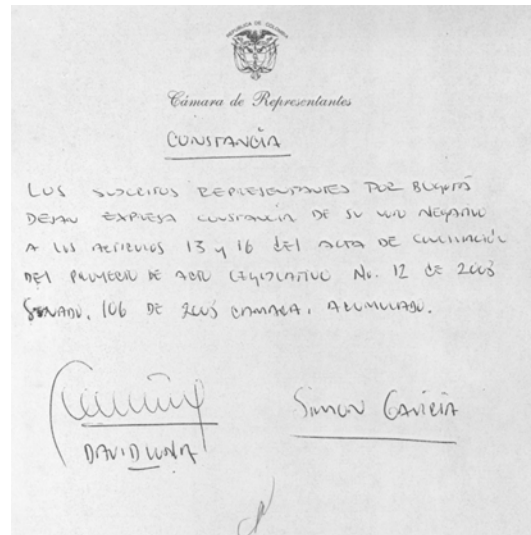 REPUBLICA DE COLOMBIA
Cámara de Representantes
CONSTANCIA
LOS SUSCRITOS REPRESENTANTES POR BOGOTÁ
DEJAN EXPRESA CONSTANCIA DE SU VOTO NEGATIVO
A LOS ARTICULOS 13 y 16 DEL ACTA DE CONCILIACIÓN
DEL PROYECTO DE ACTO LEGISLATIVO No. 12 DE 2008
SENADO, 106 DE 2008 CAMARA, ACUMULADO.
DAVID LUNA
SIMON GAVIRIA